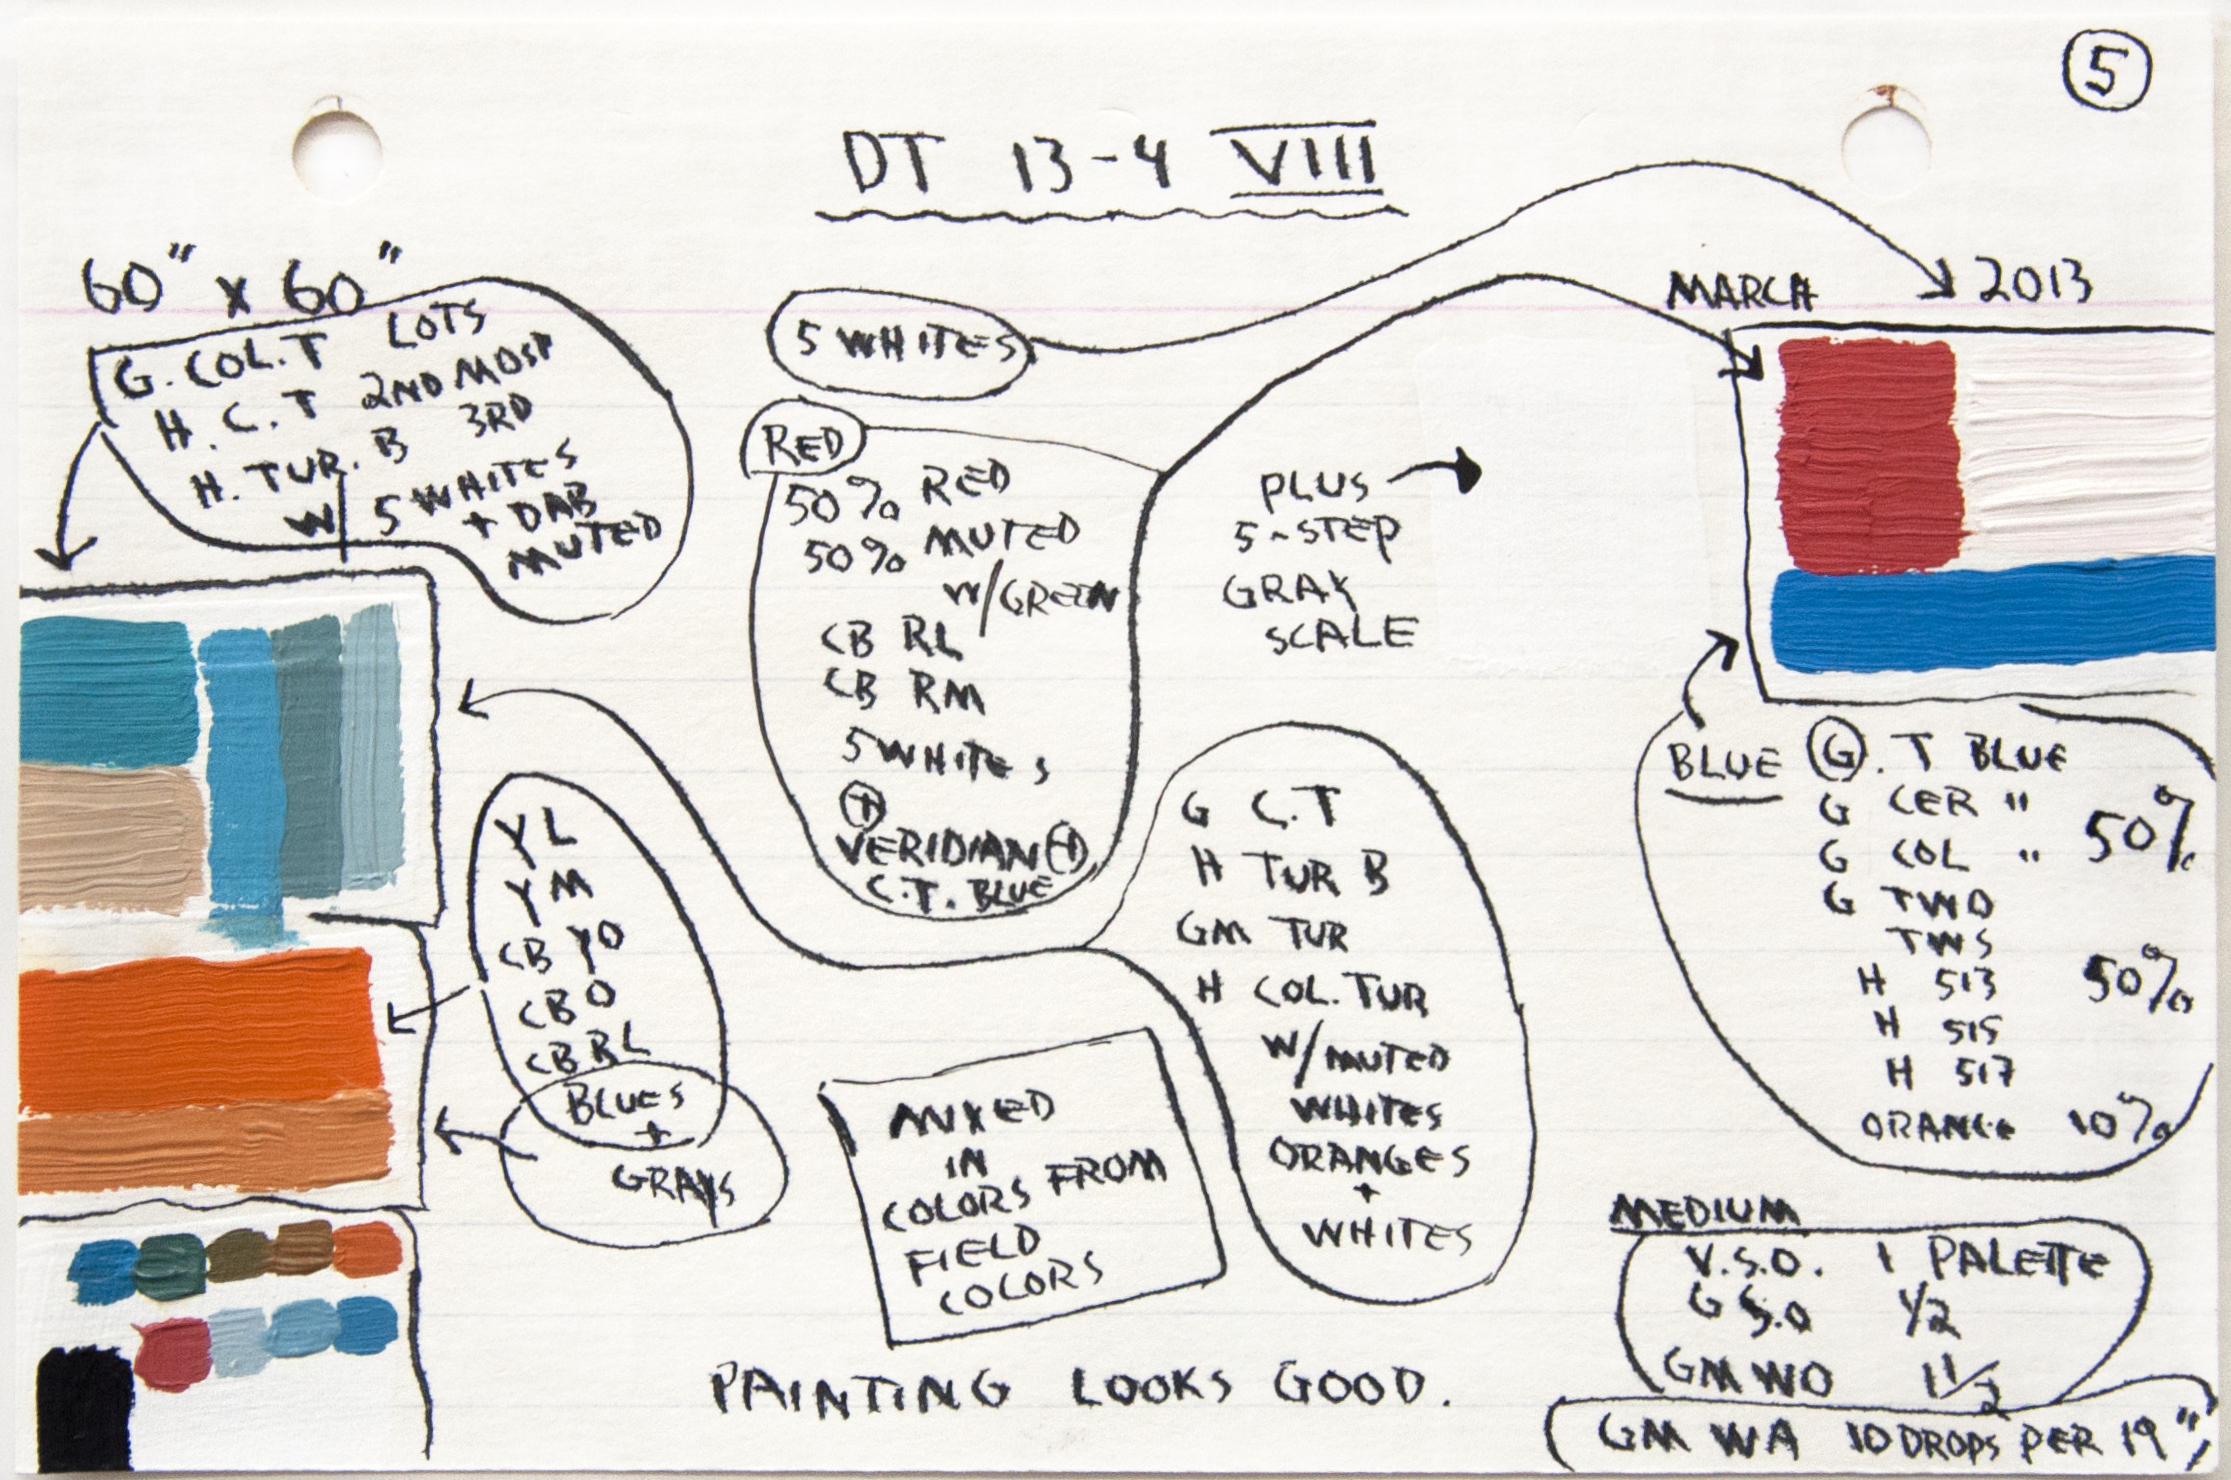 5
DT 13-4 VIII
60" x 60"
MARCH 2013
G. COL. T LOTS
H. C. T 2ND MOST
H. TUR. B 3RD
W/ 5 WHITES
+ DAB
MUTED
5 WHITES
RED
50% RED
50% MUTED
W/GREEN
CB RL
CB RM
5 WHITES
+
VERIDIAN H
C.T. BLUE
PLUS
5-STEP
GRAY
SCALE
YL
YM
CB YO
CB O
CB RL
BLUES
+
GRAYS
MIXED
IN
COLORS FROM
FIELD
COLORS
G C.T
H TUR B
GM TUR
H COL. TUR
W/MUTED
WHITES
ORANGES
+
WHITES
BLUE G. T BLUE
G CER "
G COL " 50%
G TWO
TWS
H 513 50%
H 515
H 517
ORANGE 10%
MEDIUM
V.S.O. 1 PALETTE
G S.O 1/2
GM WO 1 1/2
GM WA 10 DROPS PER 19"
PAINTING LOOKS GOOD.